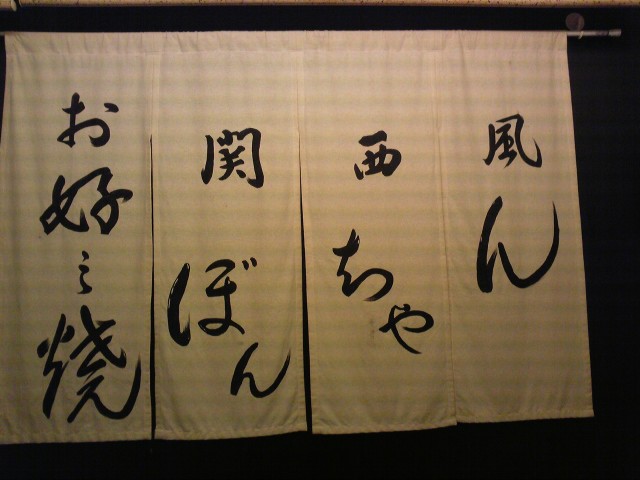 お好み焼
関西風
ぼんちゃん